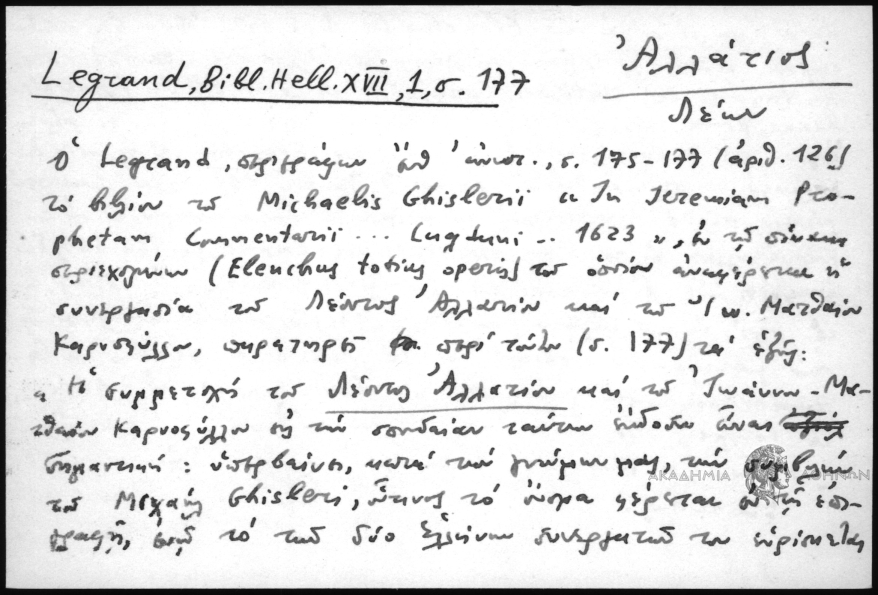 Legrand, Bibl. Hell. XVII, 1, σ. 177
Ἀλλάτιος
Λέων
Ὁ Legrand, περιγράφων ὑπ' ἀριθ., σ. 175-177 (ἀριθ. 126)
τό βιβλίον τοῦ Michaelis Ghislerii « In Jeremiam Pro-
phetam Commentarii ... Lugduni .. 1623 », ἐν τῷ πίνακι
περιεχομένων (Elenchus totius operis) τοῦ ὁποίου ἀναφέρεται ἡ
συνεργασία τοῦ Λέοντος Ἀλλατίου καί τοῦ Ἰω. Ματθαίου
Καρυοφύλλου, παρατηρεῖ περί τούτου (σ. 177) τά ἑξῆς:
« Ἡ συμμετοχή τοῦ Λέοντος Ἀλλατίου καί τοῦ Ἰωάννου-Ματ-
θαίου Καρυοφύλλου εἰς τήν σπουδαίαν ταύτην ἔκδοσιν εἶναι
σημαντική: ὑπερβαίνει, κατά τήν γνώμην μας, τήν συμβολήν
τοῦ Μιχαήλ Ghisleri, οὗτινος τό ὄνομα φέρεται ἐν τῇ ἐπι-
γραφῇ, ἐνῷ τό τῶν δύο Ἑλλήνων συνεργατῶν του εὑρίσκεται
ΑΚΑΔΗΜΙΑ ΑΘΗΝΩΝ